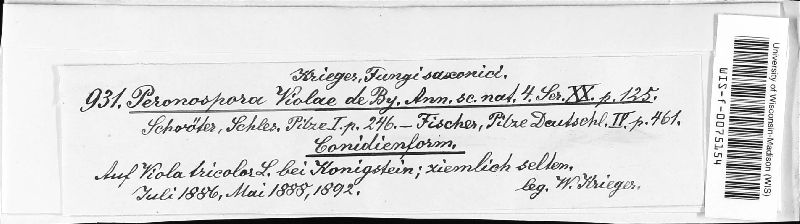 Krieger, Fungi saxonici.
931. Peronospora Violae de By. Ann. sc. nat. 4. Ser. XX. p. 125.
Schröter, Schles. Pilze I. p. 246. — Fischer, Pilze Deutschl. IV. p. 461.
Conidienform.
Auf Viola tricolor L. bei Königstein; ziemlich selten.
Juli 1886, Mai 1888, 1892.
leg. W. Krieger.
WIS-f-0075154
University of Wisconsin-Madison (WIS)